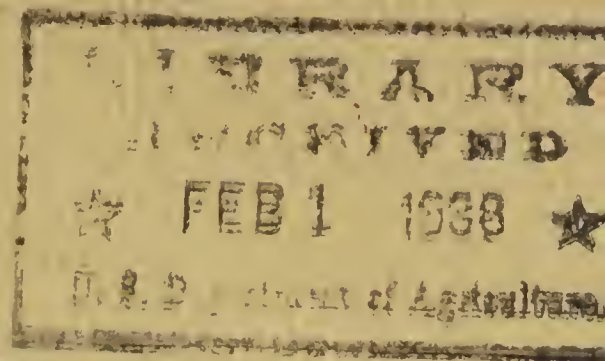 LIBRARY
RECEIVED
★ FEB 1 1938 ★
U. S. Department of Agriculture